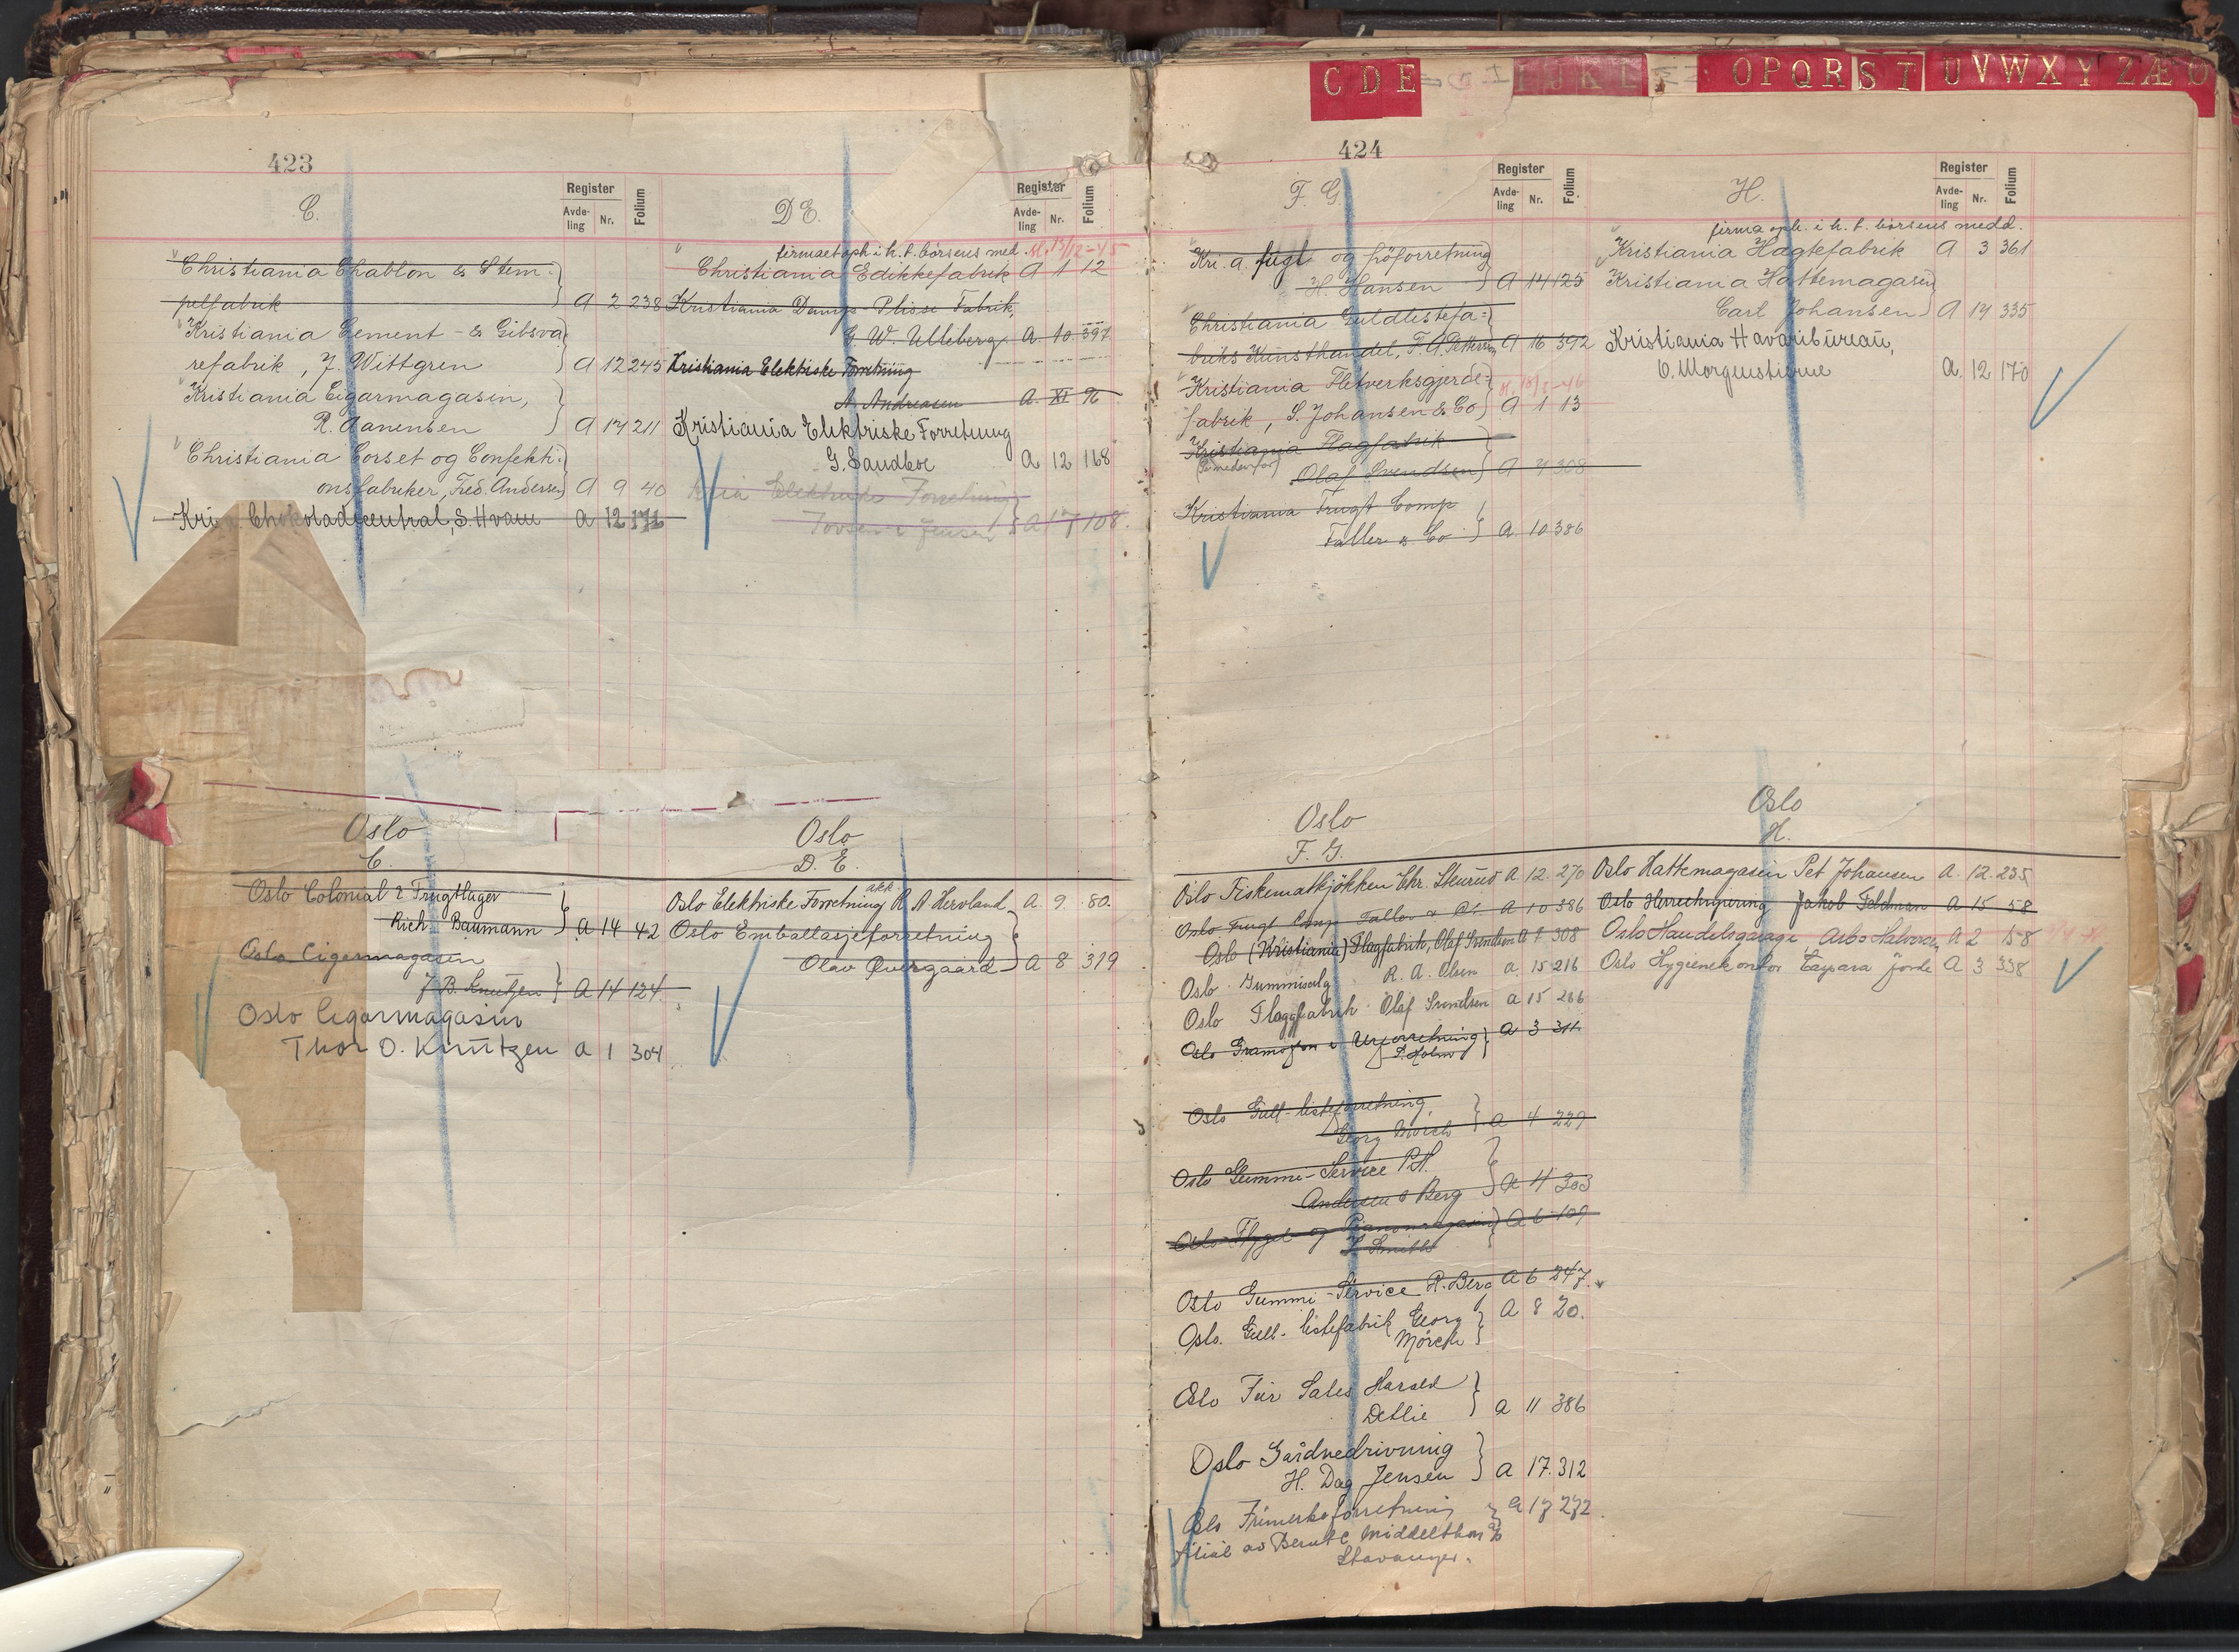 C D E I J K L O P Q R S T U V W X Y Z Æ Ø
423
C.
Register
Avde-
ling
Nr.
Folium
Christiania Chablon & Stem-
pelfabrik A 2 238
Kristiania Cement - & Gibsva
refabrik, J. Wittgren A 12 245
Kristiania Cigarmagasin,
R. Aanensen A 14 211
Christiania Corset og Confekti-
onsfabriker, Fred. Andersen A 9 40
Kri.a Chokoladecentral, S. Hvam A 12 171
Oslo
C.
Oslo Colonial & Frugtlager
Rich. Baumann A 14 42
Oslo Cigarmagasin
J. B. Knutzen A 14 124
Oslo Cigarmagasin
Thor O. Knutzen A 1 304
D E.
Register
Avde-
ling
Nr.
Folium
firmaet oph. i h. t. börsens med. M. 13/12-45
Christiania Edikkefabrik A 1 12
Kristiania Damp- Plissé Fabrik,
G. W. Ulleberg A. 10 397
Kristiania Elektriske Forretning
A. Andreasen A. XI 96
Kristiania Elektriske Forretning
G. Sandboe A 12 168
Kria Elektriske Forretning
Jensen A 17 108.
Oslo
D. E.
Oslo Elektriske Forretning A. Heroland A. 9. 80.
Oslo Emballasjeforretning
Olav Overgaard A 8 319
424
F. G.
Register
Avde-
ling
Nr.
Folium
Kri.a. fugl og fröforretning
H. Hansen A 14 125
Christiania Guldlistefa-
briks Kunsthandel, F. A. Pettersen A 16 392
Kristiania Fletverksgjerde- M. 18/2-46
fabrik, S. Johansen & Co A 1 13
Kristiania Flagfabrik
(se nedenfor) Olaf Svendsen A 7 308
Kristiania Frugt Comp
Faller & Co A 10 386
Oslo
F. G.
Oslo Fiskematkjökken Chr. Stensrud A. 12. 270
Oslo Frugt Comp Faller & Co. A 10 386
Oslo (Kristiania) Flagfabrik, Olaf Svendsen A 7 308
Oslo Gummisalg R. A. Olsen a. 15 216
Oslo Flaggfabrik Olaf Svendsen a 15 286
Oslo Gramofon & Urforretning A 3 311
P. Holm
Oslo Gull-listeforretning,
Georg Mörch A 4 229
Oslo Gummi-Service P.H.
Andersen & Berg A 4 303
Oslo Flygel og Pianomagasin A 6 109
Oslo Gummi-Service R. Berg A 6 247.
Oslo. Gull-listefabrik Georg A 8 20.
Mörch
Oslo Fur Sales Harald
Detlie A 11 386
Oslo Gårdnedrivning
H. Dag Jensen A 17. 312
Oslo Frimerkeforretning A 17 272
filial av Bernt C. Middelthon
Stavanger.
H.
Register
Avde-
ling
Nr.
Folium
firma oph. i h. t. börsens medd.
Kristiania Hagtefabrik A 3 361
Kristiania Hattemagasin
Carl Johansen A 14 335
Kristiania Havaribureau,
O. Morgenstierne A. 12 170
Oslo
H.
Oslo Hattemagasin Pet Johansen A. 12. 235
Oslo Herreekvipering Jakob Feldman A 15 58
Oslo Handelsgarage, Halvorsen A 2 158
Oslo Hygienekontor Jorde A 3 338